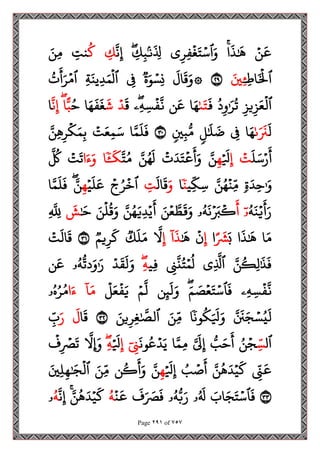 عَنْ هَٰذَا ۚ وَٱسْتَغْفِرِى لِذَنۢبِكِ ۖ إِنَّكِ كُنتِ مِنَ
ٱلْخَاطِـِٔينَ ٢٩ ۞ وَقَالَ نِسْوَةٌ فِى ٱلْمَدِينَةِ ٱمْرَأَتُ
ٱلْعَزِيزِ تُرَٰوِدُ فَتَىٰهَا عَن نَّفْسِهِۦ ۖ قَدْ شَغَفَهَا حُبًّا ۖ إِنَّا
لَنَرَىٰهَا فِى ضَلَٰلٍ مُّبِينٍ ٣٠ فَلَمَّا سَمِعَتْ بِمَكْرِهِنَّ
أَرْسَلَتْ إِلَيْهِنَّ وَأَعْتَدَتْ لَهُنَّ مُتَّكَـًٔا وَءَاتَتْ كُلَّ
وَٰحِدَةٍ مِّنْهُنَّ سِكِّينًا وَقَالَتِ ٱخْرُجْ عَلَيْهِنَّ ۖ فَلَمَّا
رَأَيْنَهُۥٓ أَكْبَرْنَهُۥ وَقَطَّعْنَ أَيْدِيَهُنَّ وَقُلْنَ حَٰشَ لِلَّهِ
مَا هَٰذَا بَشَرًا إِنْ هَٰذَآ إِلَّا مَلَكٌ كَرِيمٌ ٣١ قَالَتْ
فَذَٰلِكُنَّ ٱلَّذِى لُمْتُنَّنِى فِيهِ ۖ وَلَقَدْ رَٰوَدتُّهُۥ عَن
نَّفْسِهِۦ فَٱسْتَعْصَمَ ۖ وَلَئِن لَّمْ يَفْعَلْ مَآ ءَامُرُهُۥ
لَيُسْجَنَنَّ وَلَيَكُونًا مِّنَ ٱلصَّٰغِرِينَ ٣٢ قَالَ رَبِّ
ٱلسِّجْنُ أَحَبُّ إِلَىَّ مِمَّا يَدْعُونَنِىٓ إِلَيْهِ ۖ وَإِلَّا تَصْرِفْ
عَنِّى كَيْدَهُنَّ أَصْبُ إِلَيْهِنَّ وَأَكُن مِّنَ ٱلْجَٰهِلِينَ
٣٣ فَٱسْتَجَابَ لَهُۥ رَبُّهُۥ فَصَرَفَ عَنْهُ كَيْدَهُنَّ ۚ إِنَّهُۥ
Page ٢٩١ of ٧٥٧